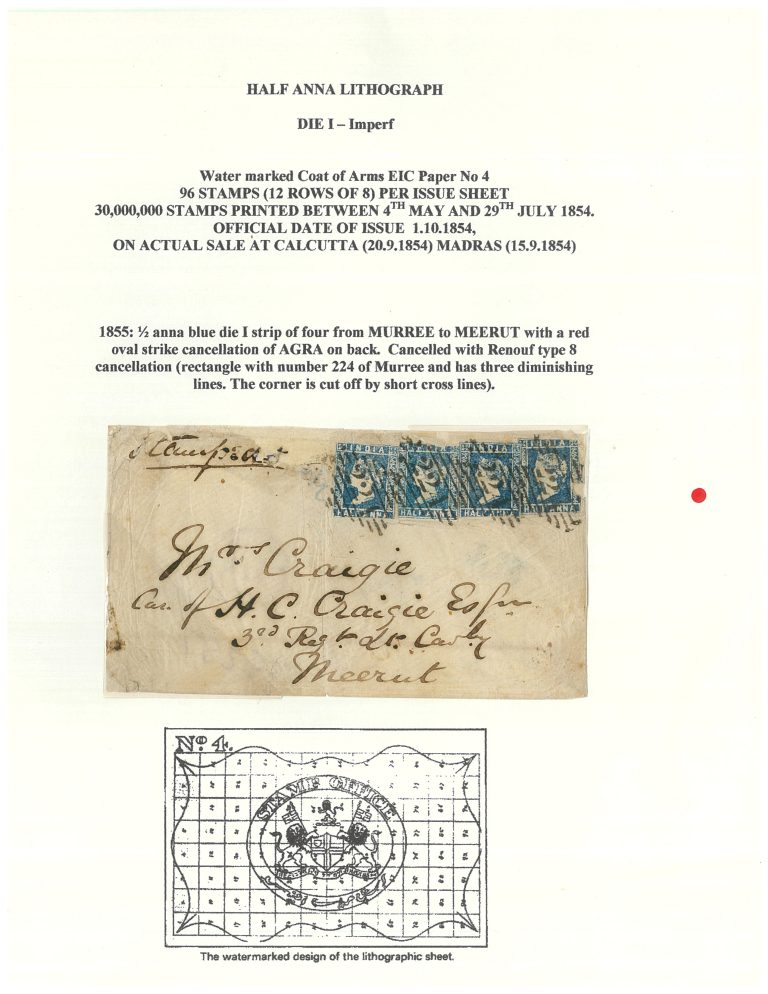 HALF ANNA LITHOGRAPH
DIE I – Imperf
Water marked Coat of Arms EIC Paper No 4
96 STAMPS (12 ROWS OF 8) PER ISSUE SHEET
30,000,000 STAMPS PRINTED BETWEEN 4TH MAY AND 29TH JULY 1854.
OFFICIAL DATE OF ISSUE 1.10.1854,
ON ACTUAL SALE AT CALCUTTA (20.9.1854) MADRAS (15.9.1854)
1855: ½ anna blue die I strip of four from MURREE to MEERUT with a red
oval strike cancellation of AGRA on back. Cancelled with Renouf type 8
cancellation (rectangle with number 224 of Murree and has three diminishing
lines. The corner is cut off by short cross lines).
Stamped
INDIA INDIA INDIA INDIA
HALF ANNA HALF ANNA HALF ANNA HALF ANNA
Mrs Craigie
Car. of H. C. Craigie Esqr
3rd Regt Lt. Cavly
Meerut
No. 4.
STAMP OFFICE
The watermarked design of the lithographic sheet.